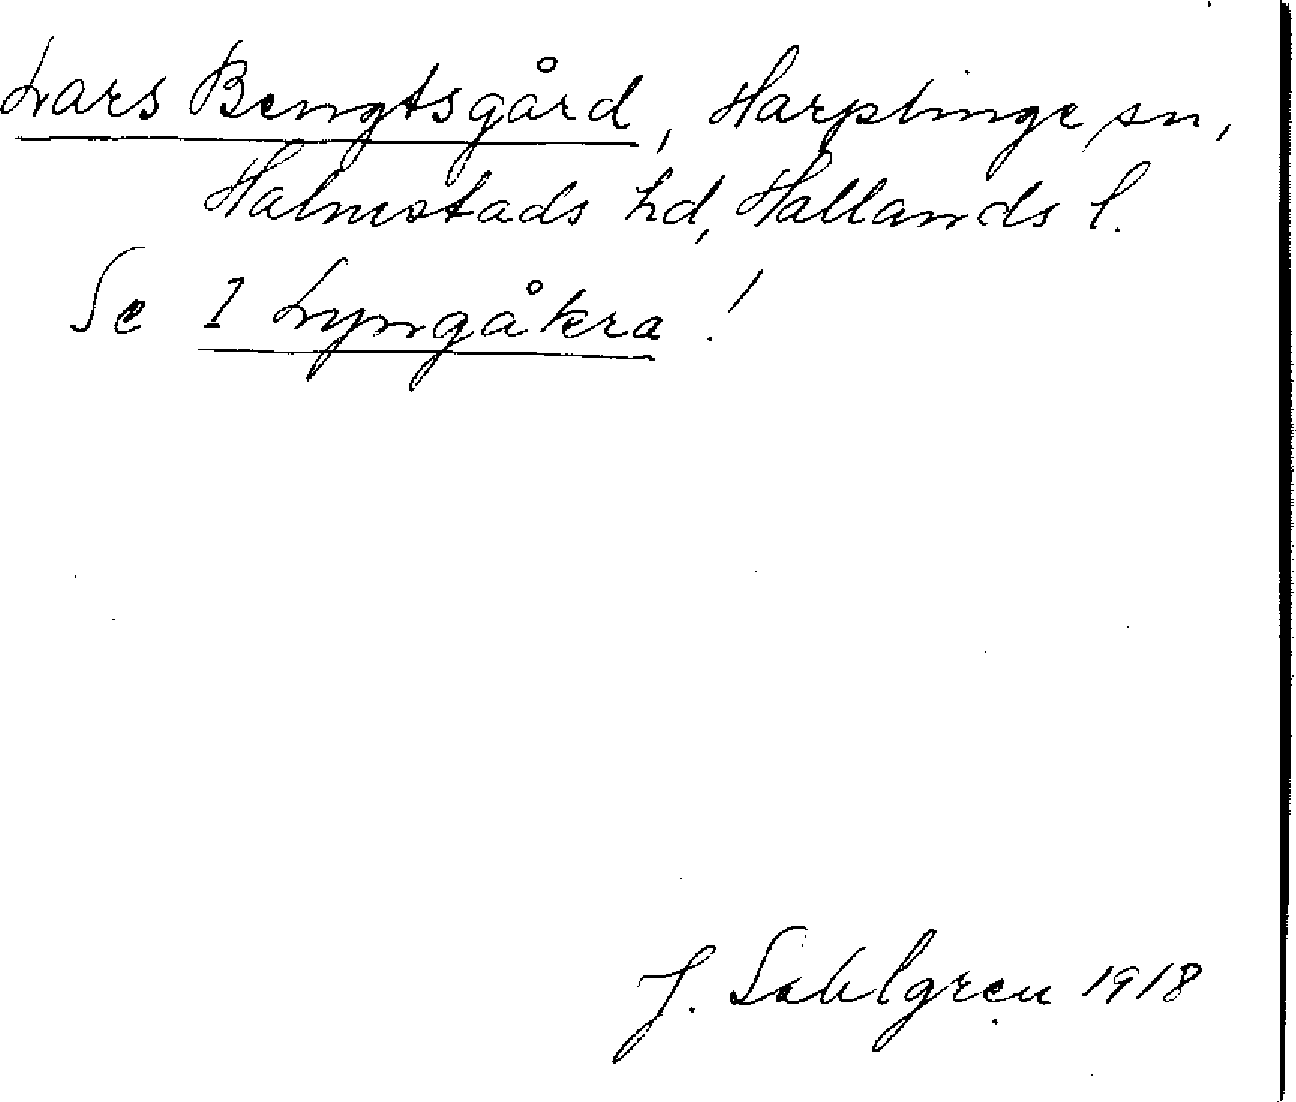 Lars Bengtsgård, Harplinge sn,
Halmstads hd, Hallands l.
Se 1 Lyngåkra!
J. Sahlgren 1918